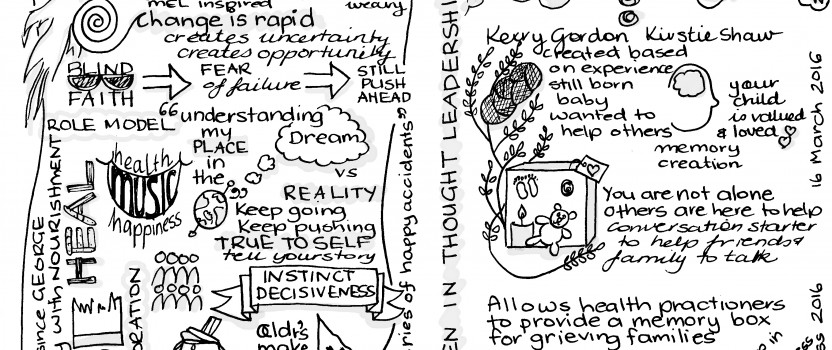 MEL inspired
weary
change is rapid
creates uncertainty
creates opportunity
BLIND
FAITH
FEAR
of failure
STILL
PUSH
AHEAD
ROLE MODEL
“understanding
my
PLACE
in
the..”
Dream
VS
REALITY
health
MUSIC
happiness
HEAL
since GEORGE
y with NOURISHMENT
Keep going
Keep pushing
TRUE TO SELF
tell your story
INSTINCT
DECISIVENESS
ORATION
Aldi's
make
ries of happy accidents”
EN IN THOUGHT LEADERSHI
Kerry Gordon Kirstie Shaw
created based
on experience
still born
baby
wanted to
help others
memory
creation
your
child
is valued
& loved
You are not alone
others are here to help
conversation starter
to help friends &
family to talk
Allows health practioners
to provide a memory box
for grieving families
16 March 2016
in
ss 2016